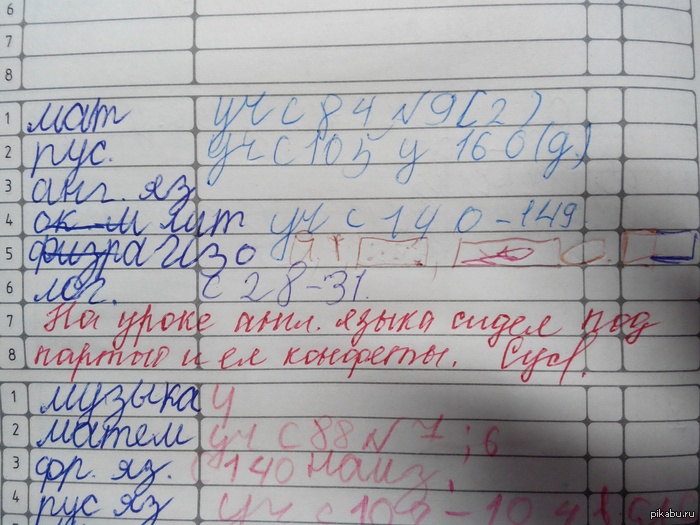 6
7
8
1 мат уч с 84 №9(2)
2 рус. уч с 105 у 160(д)
3 анг. яз
4 ок м лит уч с 140-149
5 физра изо
6 лог. с 28-31.
7 На уроке англ. языка сидел под
8 партой и ел конфеты.
1 музыка у
2 матем уч с 88 № 7; 6
3 фр. яз. с 140 наиз.
4 рус яз уч с 102-104
pikabu.ru